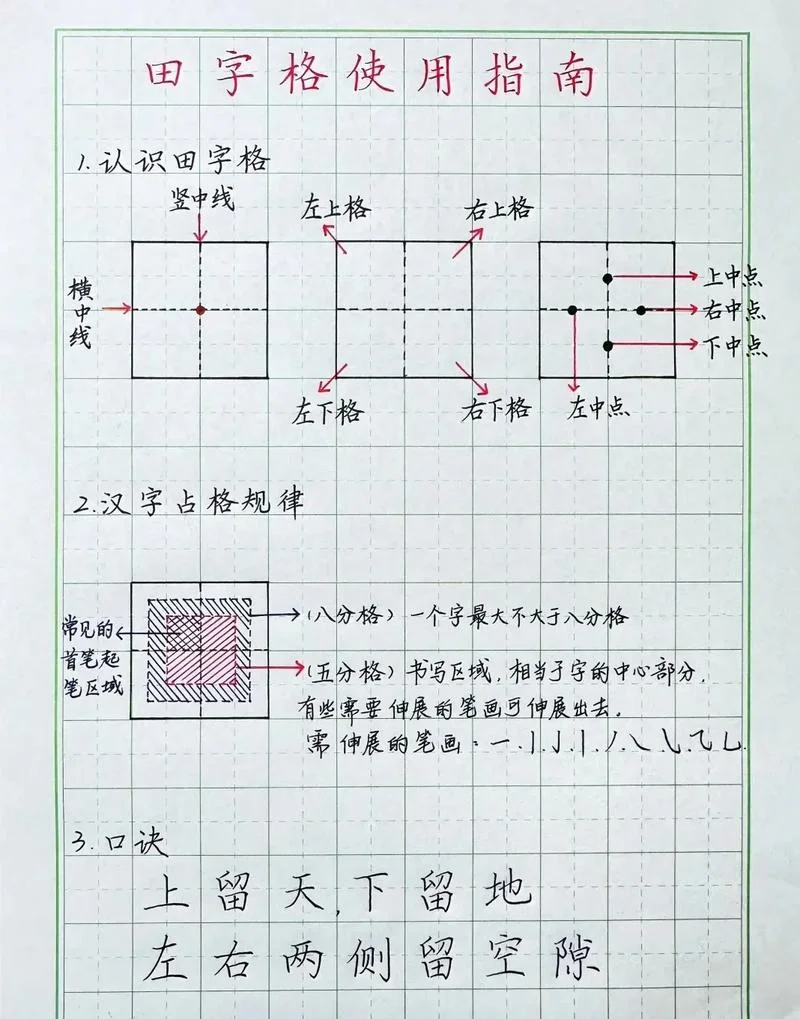 田字格使用指南
1.认识田字格
竖中线
横中线
左上格
右上格
左下格
右下格
上中点
右中点
下中点
左中点
2.汉字占格规律
常见的
首笔起
笔区域
(八分格) 一个字最大不大于八分格
(五分格) 书写区域,相当于字的中心部分,
有些需要伸展的笔画可伸展出去。
需伸展的笔画:一、丨、亅、丨、丿、㇏、㇂、⺄、乚.
3.口诀
上留天,下留地
左右两侧留空隙